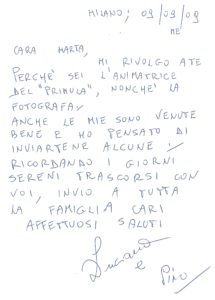 MILANO; 09/09/09
ME
CARA MARTA,
MI RIVOLGO A TE
PERCHÈ SEI L'ANIMATRICE
DEL "PRIMULA", NONCHÈ LA
FOTOGRAFA,
ANCHE LE MIE SONO VENUTE
BENE E HO PENSATO DI
INVIARTENE ALCUNE!
RICORDANDO I GIORNI
SERENI TRASCORSI CON
VOI, INVIO A TUTTA
LA FAMIGLIA CARI
AFFETTUOSI SALUTI
Luciana
e
Pino